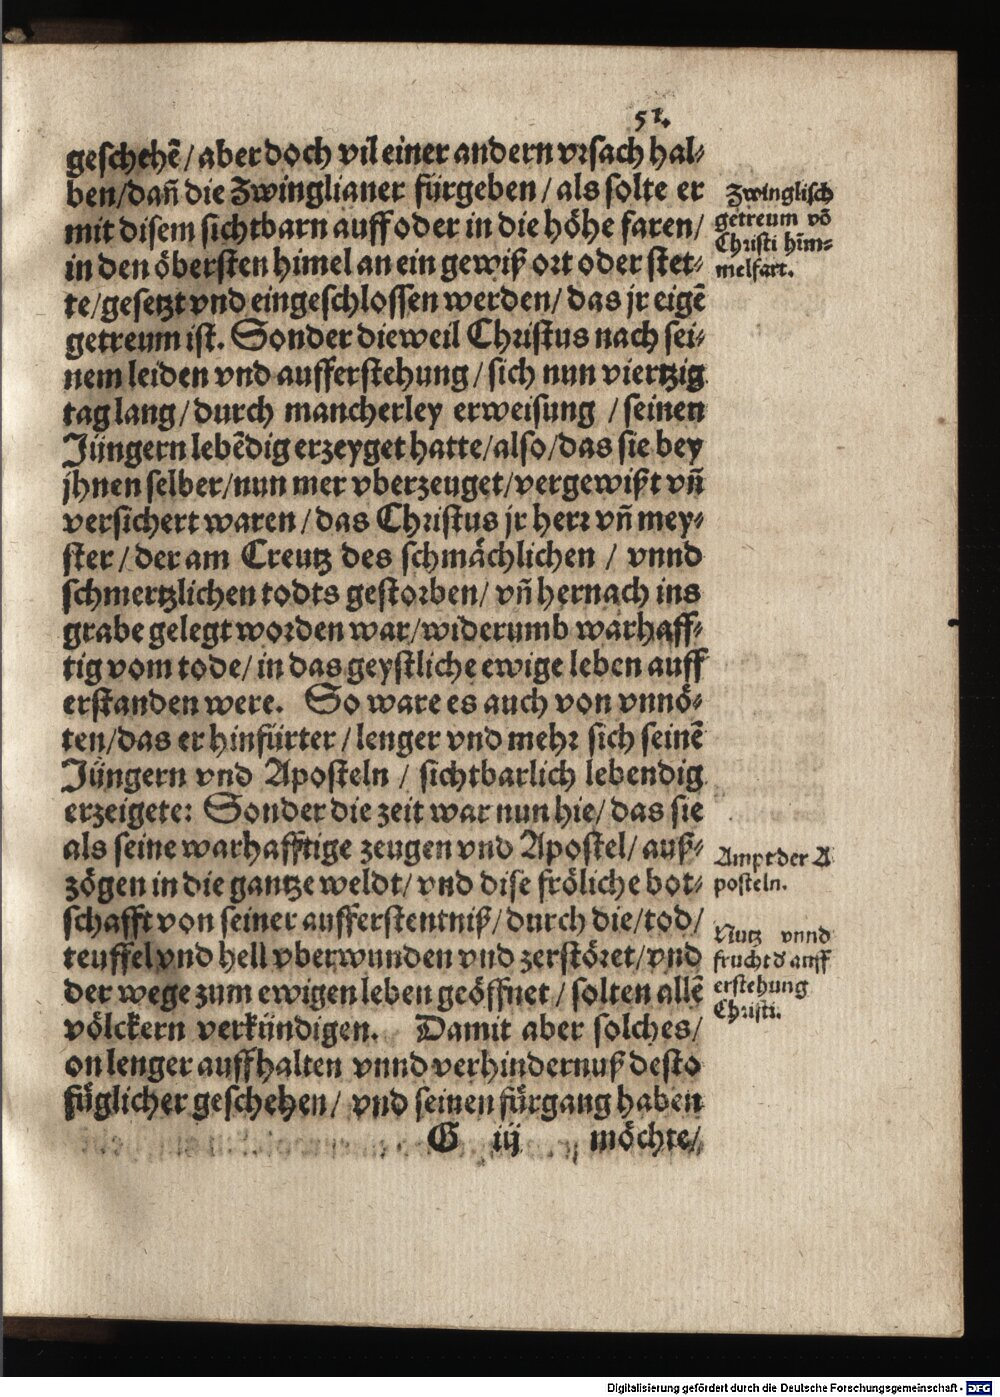 51.
geschehē / aber doch vil einer andern vrsach hal-
ben/dañ die Zwinglianer fürgeben / als solte er
mit disem sichtbarn auff oder in die höhe faren/
in den öbersten himel an ein gewiß ort oder stet-
te/gesetzt vnd eingeschlossen werden/ das jr eigē
getreum ist. Sonder dieweil Christus nach sei-
nem leiden vnd aufferstehung / sich nun viertzig
tag lang / durch mancherley erweisung / seinen
Jüngern lebēdig erzeyget hatte/also/das sie bey
jhnen selber/nun mer vberzeuget/vergewißt vñ
versichert waren / das Christus jr herr vñ mey-
ster / der am Creutz des schmächlichen / vnnd
schmertzlichen todts gestorben/ vñ hernach ins
grabe gelegt worden war/widerumb warhaff-
tig vom tode/ in das geystliche ewige leben auff
erstanden were. So ware es auch von vnnö-
ten/das er hinfürter / lenger vnd mehr sich seinē
Jüngern vnd Aposteln / sichtbarlich lebendig
erzeigete: Sonder die zeit war nun hie/ das sie
als seine warhafftige zeugen vnd Apostel/ auß-
zögen in die gantze weldt/ vnd dise fröliche bot-
schafft von seiner aufferstentniß/ durch die/tod/
teuffel vnd hell vberwunden vnd zerstöret/vnd
der wege zum ewigen leben geöffnet / solten allē
völckern verkündigen. Damit aber solches/
on lenger auffhalten vnnd verhindernuß desto
füglicher geschehen/ vnd seinen fürgang haben
G iij möchte/
Zwinglisch
getreum vō
Christi hīm-
melfart.
Ampt der A
posteln.
Nutz vnnd
frucht d' auff
erstehung
Christi.
Digitalisierung gefördert durch die Deutsche Forschungsgemeinschaft - DFG